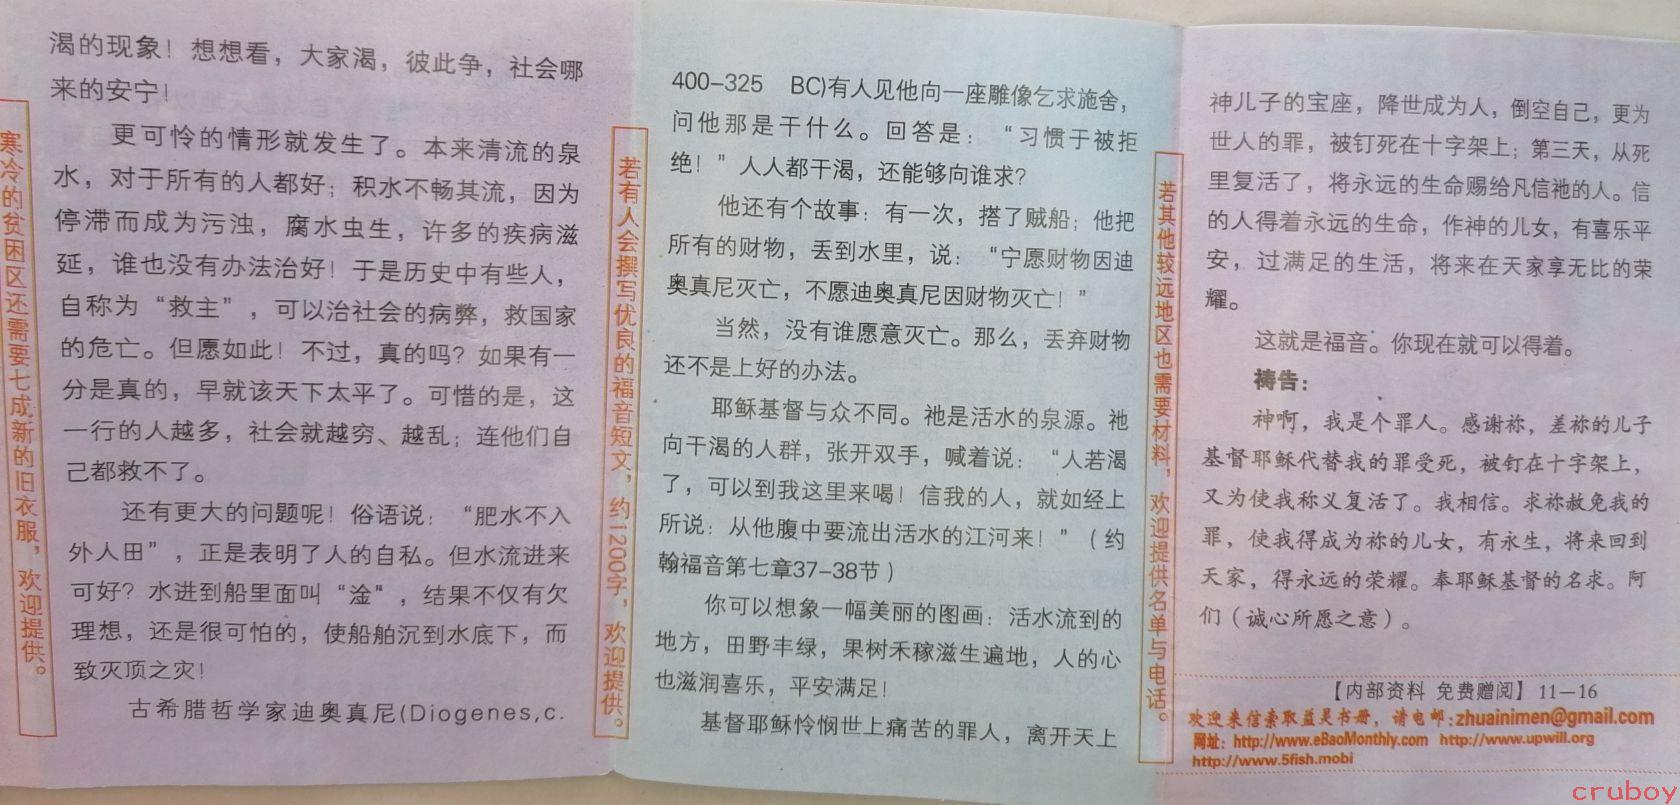 寒冷的贫困区还需要七成新的旧衣服，欢迎提供。
渴的现象！想想看，大家渴，彼此争，社会哪
来的安宁！
更可怜的情形就发生了。本来清流的泉
水，对于所有的人都好；积水不畅其流，因为
停滞而成为污浊，腐水虫生，许多的疾病滋
延，谁也没有办法治好！于是历史中有些人，
自称为“救主”，可以治社会的病弊，救国家
的危亡。但愿如此！不过，真的吗？如果有一
分是真的，早就该天下太平了。可惜的是，这
一行的人越多，社会就越穷、越乱；连他们自
己都救不了。
还有更大的问题呢！俗语说：“肥水不入
外人田”，正是表明了人的自私。但水流进来
可好？水进到船里面叫“淦”，结果不仅有欠
理想，还是很可怕的，使船舶沉到水底下，而
致灭顶之灾！
古希腊哲学家迪奥真尼(Diogenes,c.
若有人会撰写优良的福音短文，约1200字，欢迎提供。
400-325 BC)有人见他向一座雕像乞求施舍，
问他那是干什么。回答是：“习惯于被拒
绝！”人人都干渴，还能够向谁求？
他还有个故事：有一次，搭了贼船；他把
所有的财物，丢到水里，说：“宁愿财物因迪
奥真尼灭亡，不愿迪奥真尼因财物灭亡！”
当然，没有谁愿意灭亡。那么，丢弃财物
还不是上好的办法。
耶稣基督与众不同。祂是活水的泉源。祂
向干渴的人群，张开双手，喊着说：“人若渴
了，可以到我这里来喝！信我的人，就如经上
所说：从他腹中要流出活水的江河来！”（约
翰福音第七章37-38节）
你可以想象一幅美丽的图画：活水流到的
地方，田野丰绿，果树禾稼滋生遍地，人的心
也滋润喜乐，平安满足！
基督耶稣怜悯世上痛苦的罪人，离开天上
若其他较远地区也需要材料，欢迎提供名单与电话。
神儿子的宝座，降世成为人，倒空自己，更为
世人的罪，被钉死在十字架上；第三天，从死
里复活了，将永远的生命赐给凡信祂的人。信
的人得着永远的生命，作神的儿女，有喜乐平
安，过满足的生活，将来在天家享无比的荣
耀。
这就是福音。你现在就可以得着。
祷告：
神啊，我是个罪人。感谢祢，差祢的儿子
基督耶稣代替我的罪受死，被钉在十字架上，
又为使我称义复活了。我相信。求祢赦免我的
罪，使我得成为祢的儿女，有永生，将来回到
天家，得永远的荣耀。奉耶稣基督的名求。阿
们（诚心所愿之意）。
【内部资料 免费赠阅】11—16
欢迎来信索取益灵书册，请电邮：zhuainimen@gmail.com
网址：http://www.eBaoMonthly.com http://www.upwill.org
http://www.5fish.mobi
cruboy